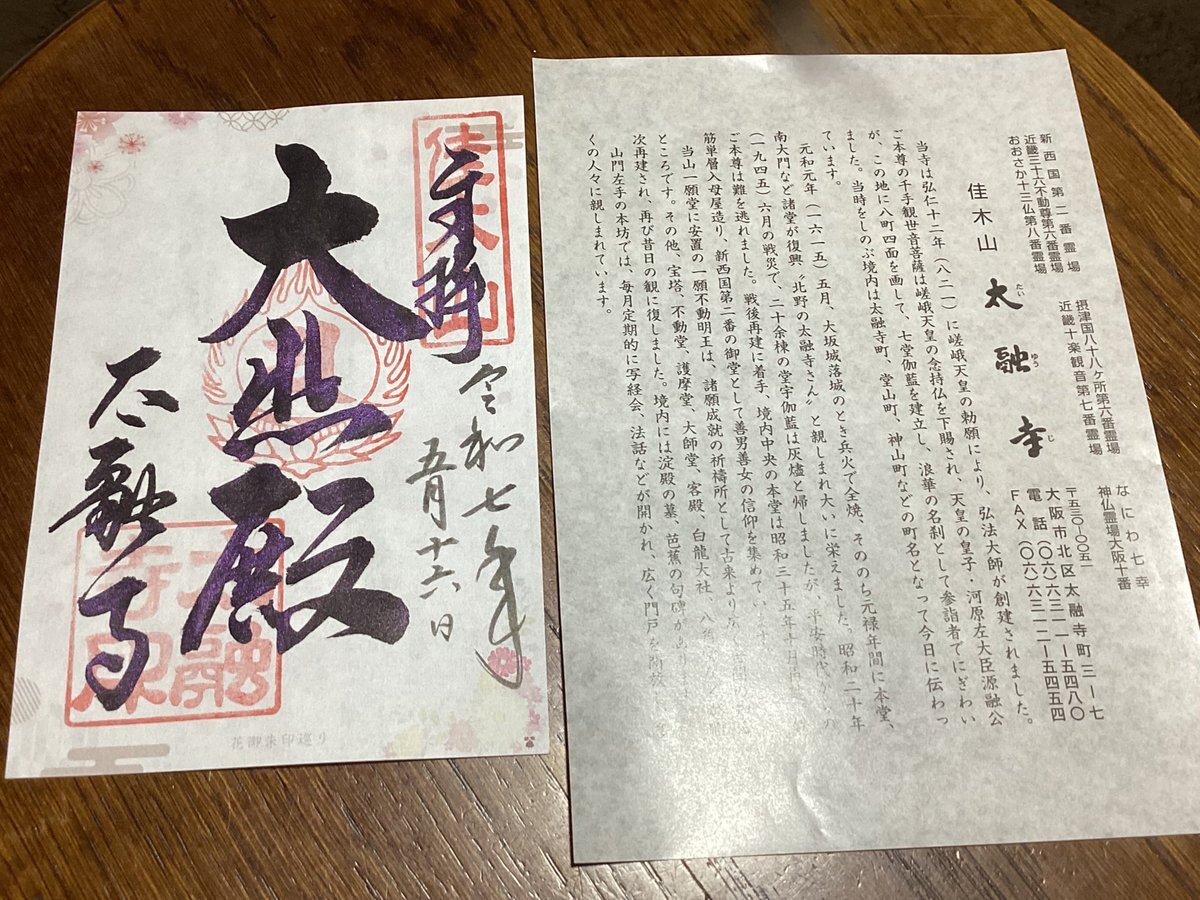 奉拝
佳木山
令和七年
五月十六日
大悲殿
太融寺
花御朱印巡り
新西国第二番霊場
近畿三十六不動尊第六番霊場
おおさか十三仏第八番霊場
摂津国八十八ケ所第六番霊場
近畿十楽観音第七番霊場
なにわ七幸
神仏霊場大阪十番
佳木山 太融寺
たい ゆう じ
〒五三〇-〇〇五一
大阪市北区太融寺町三-七
電話(〇六)六三一一-五四八〇
FAX(〇六)六三一二-五四五四
当寺は弘仁十二年(八二一)に嵯峨天皇の勅願により、弘法大師が創建されました。
ご本尊の千手観世音菩薩は嵯峨天皇の念持仏を下賜され、天皇の皇子・河原左大臣源融公
が、この地に八町四面を画して、七堂伽藍を建立し、浪華の名刹として参詣者でにぎわい
ました。当時をしのぶ境内は太融寺町、堂山町、神山町などの町名となって今日に伝わっ
ています。
元和元年(一六一五)五月、大坂城落城のとき兵火で全焼、そののち元禄年間に本堂、
南大門など諸堂が復興〝北野の太融寺さん〟と親しまれ大いに栄えました。昭和二十年
(一九四五)六月の戦災で、二十余棟の堂宇伽藍は灰燼と帰しましたが、平安時代
ご本尊は難を逃れました。戦後再建に着手、境内中央の本堂は昭和三十五年十月
筋単層入母屋造り、新西国第二番の御堂として善男善女の信仰を集めています
当山一願堂に安置の一願不動明王は、諸願成就の祈禱所として古来より広
ところです。その他、宝塔、不動堂、護摩堂、大師堂、客殿、白龍大社
次再建され、再び昔日の観に復しました。境内には淀殿の墓、芭蕉の句碑が
山門左手の本坊では、毎月定期的に写経会、法話などが開かれ、広く門戸を開放
くの人々に親しまれています。